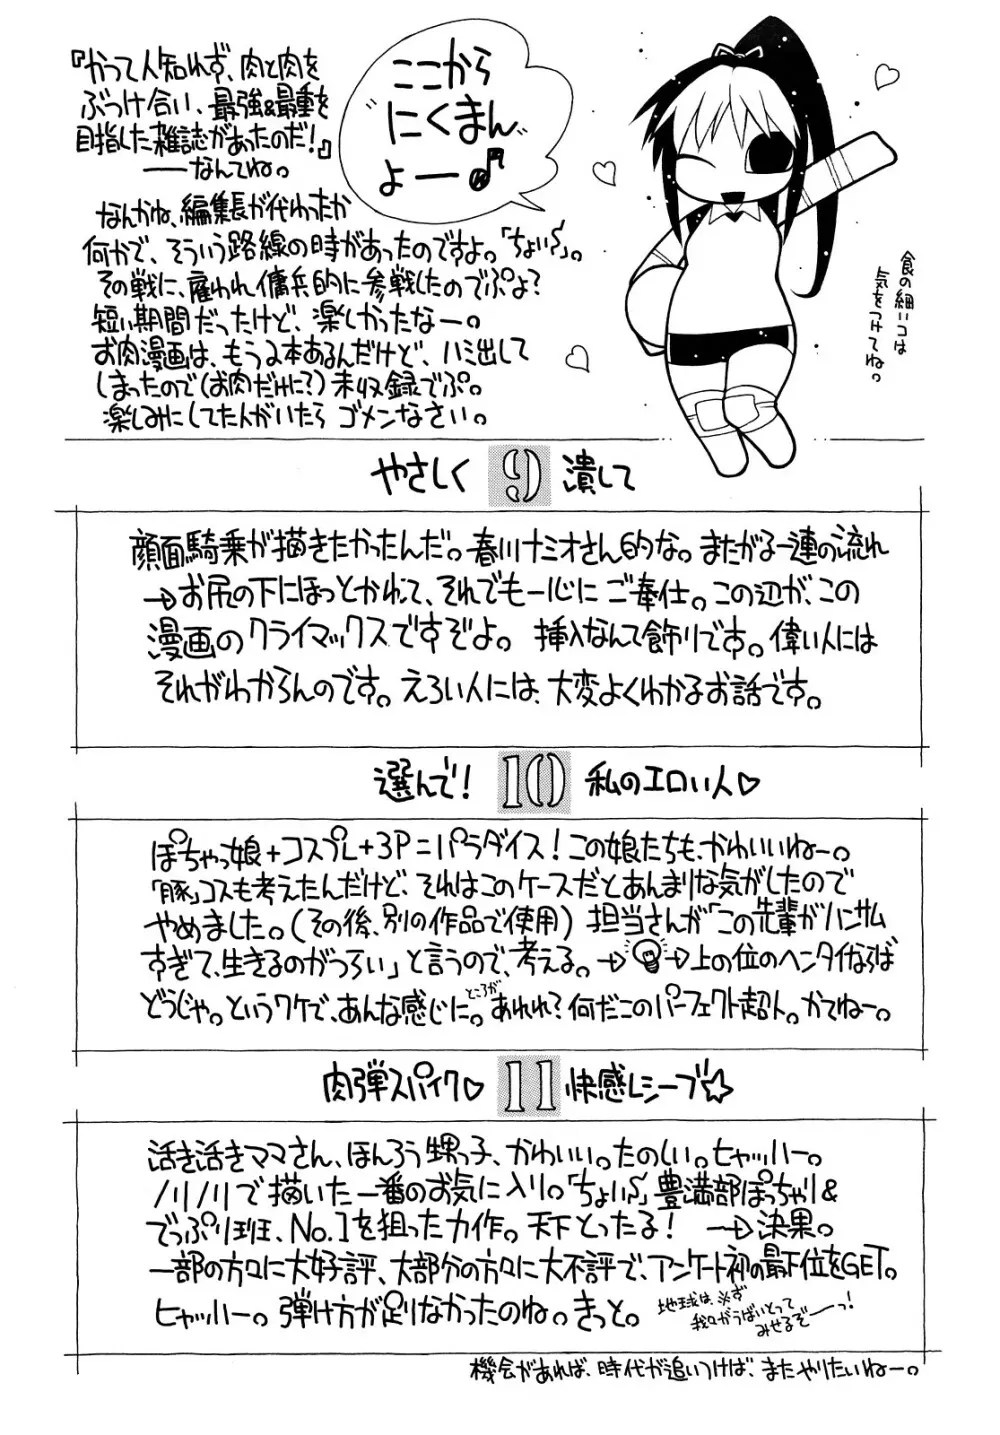 『かつて人知れず、肉と肉を
ぶつけ合い、最強&最重を
目指した雑誌があったのだ!』
──なんてね。
ここから
"にくまん"
よー♪
なんかね、編集長が代わったか
何かで、そういう路線の時があったのですよ。「ちょい〜」。
その戦に、雇われ傭兵的に参戦したのでぷよ?
短い期間だったけど、楽しかったなー。
お肉漫画は、もう2本あるんだけど、ハミ出して
しまったので(お肉だけに?)未収録でぷ。
楽しみにしてた人がいたら ゴメンなさい。
食の細いコは
気をつけてね。
やさしく 9 潰して
顔面騎乗が描きたかったんだ。春川ナミオさん的な。またがる一連の流れ
→お尻の下にほっとかれて、それでも一心に ご奉仕。この辺が、この
漫画のクライマックスですぞよ。 挿入なんて飾りです。偉い人には
それがわからんのです。えろい人には、大変よくわかるお話です。
選んで! 10 私のエロい人♡
ぽちゃっ娘+コスプレ+3P=パラダイス!この娘たちも、かわいいねー。
「豚」コスも考えたんだけど、それはこのケースだとあんまりな気がしたので
やめました。(その後、別の作品で使用) 担当さんが「この先輩がハンサム
すぎて、生きるのがつらい」と言うので、考える。→💡→上の位のヘンタイならば
どうじゃ。というワケで、あんな感じに。ところがあれれ?何だこのパーフェクト超人。かてねー。
肉弾スパイク♡ 11 快感レシーブ☆
活き活きママさん、ほんろう甥っ子、かわいい。たのしい。ヒャッハー。
ノリノリで描いた一番のお気に入り。「ちょい〜」豊満部ぽっちゃり&
でっぷり班、No.1を狙った力作。天下とったる! →決果。
一部の方々に大好評、大部分の方々に大不評で、アンケート初の最下位をGET。
ヒャッハー。弾け方が足りなかったのね。きっと。
地球は、必ず
我々がうばいとって
みせるぞーっ!
機会があれば、時代が追いつけば、またやりたいねー。